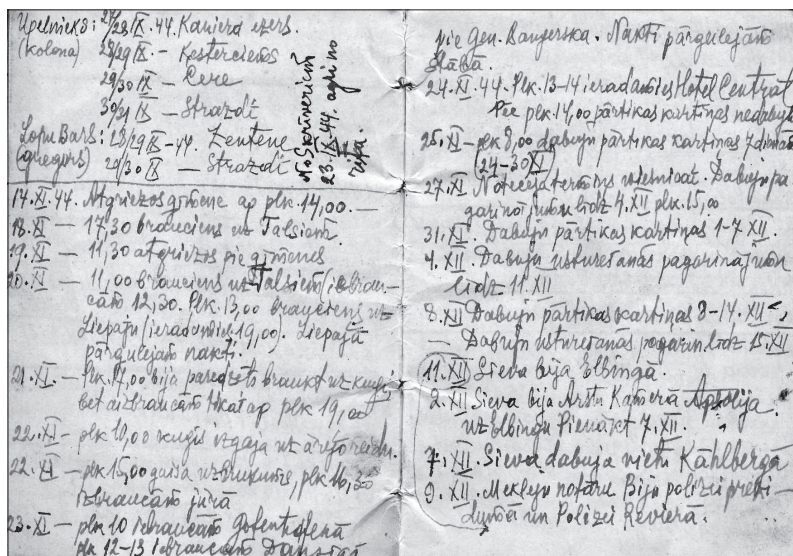 Upelnieks: 27/28 IX. 44. Kaņiera ezers.
(kolona) 28/29 IX. – Ķesterciems
29/30 IX – Cere
30/31 IX – Strazdi
Lopu Bars: 28/29 IX-44. Zentene
29/30 IX – Strazdi
No Skrīveriem
23. IX 44. agri no
rīta.
14. XI. 44. Atgriezos ģimenē ap plk. 14,00. —
18. XI — 17,30 brauciens uz Talsiem.
19. XI — 11,30 atgriezos pie ģimenes
20. XI — 11,00 brauciens uz Talsiem (iebrau-
cām 12,30. Plk. 13,00 brauciens uz
Liepāju (ieradāmies 19,00). Liepājā
pārgulejam nakti.
21. XI. — Plk. 17,00 bija paredzēts braukt uz kuģi,
bet aizbraucām tikai ap plk 19,00
22. XI — plk 10,00 kuģis izgāja uz ārējo reidu.
22. XI — plk 15,00 gaisa uzbrukums, plk 16,30
izbraucām jūrā
23. XI — plk 10 iebraucām Gotenhafenā
plk 12-13 iebraucām Danzigā
pie Gen. Bangerska. Nakti pārgulejām
štābā.
24. XI. 44. Plk. 13-14 ieradāmies Hotel Central
Pēc plk. 14,00 pārtikas kartiņas nedabūju
25. XI — plk 9,00 dabūju pārtikas kartiņas 7 dienām
(24-30 XI)
27. XI. Notecēja termiņs viesnīcai. Dabūju pa-
garinājumu līdz 4. XII plk. 15,00
31. XI. Dabūju pārtikas kartiņas 1-7 XII.
4. XII. Dabūju uzturēšanās pagarinājumu
līdz 11. XII
8. XII Dabūju pārtikas kartiņas 8-14. XII
— Dabūju uzturēšanās pagarin. līdz 15. XII
11. XII Sieva bija Elbingā.
2. XII Sieva bija Ārstu Kamerā
uz Elbingu Pienākt 7. XII.
7. XII. Sieva dabūja vietu Kahlbergā
9. XII. Meklēju notāru Biju polizei prezi-
dijumā un Polizei Revierā.